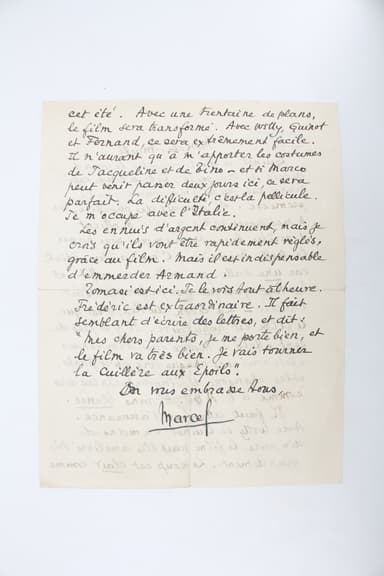 cet été. Avec une trentaine de plans,
le film sera transformé. Avec Willy, Guinot
et Fernand, ce sera extrêmement facile.
Il n'auront qu'à m'apporter les costumes
de Jacqueline et de Tino – et si Marco
peut venir passer deux jours ici, ce sera
parfait. La difficulté, c'est la pellicule.
Je m'occupe avec l'Italie.
Les ennuis d'argent continuent, mais je
crois qu'ils vont être rapidement réglés,
grâce au film. Mais il est indispensable
d'emmerder Armand.
Tomasi est ici. Je le vois tout à l'heure.
Frédéric est extraordinaire. Il fait
semblant d'écrire des lettres, et dit :
"Mes chers parents, je me porte bien, et
le film va très bien. Je vais tourner
la Cuillère aux Epoils".
On vous embrasse tous.
Marcel